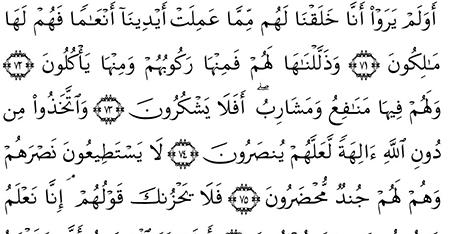 أَوَلَمْ يَرَوْا۟ أَنَّا خَلَقْنَا لَهُم مِّمَّا عَمِلَتْ أَيْدِينَآ أَنْعَـٰمًا فَهُمْ لَهَا
مَـٰلِكُونَ ﴿٧١﴾ وَذَلَّلْنَـٰهَا لَهُمْ فَمِنْهَا رَكُوبُهُمْ وَمِنْهَا يَأْكُلُونَ ﴿٧٢﴾
وَلَهُمْ فِيهَا مَنَـٰفِعُ وَمَشَارِبُ ۖ أَفَلَا يَشْكُرُونَ ﴿٧٣﴾ وَٱتَّخَذُوا۟ مِن
دُونِ ٱللَّهِ ءَالِهَةً لَّعَلَّهُمْ يُنصَرُونَ ﴿٧٤﴾ لَا يَسْتَطِيعُونَ نَصْرَهُمْ
وَهُمْ لَهُمْ جُندٌ مُّحْضَرُونَ ﴿٧٥﴾ فَلَا يَحْزُنكَ قَوْلُهُمْ ۘ إِنَّا نَعْلَمُ